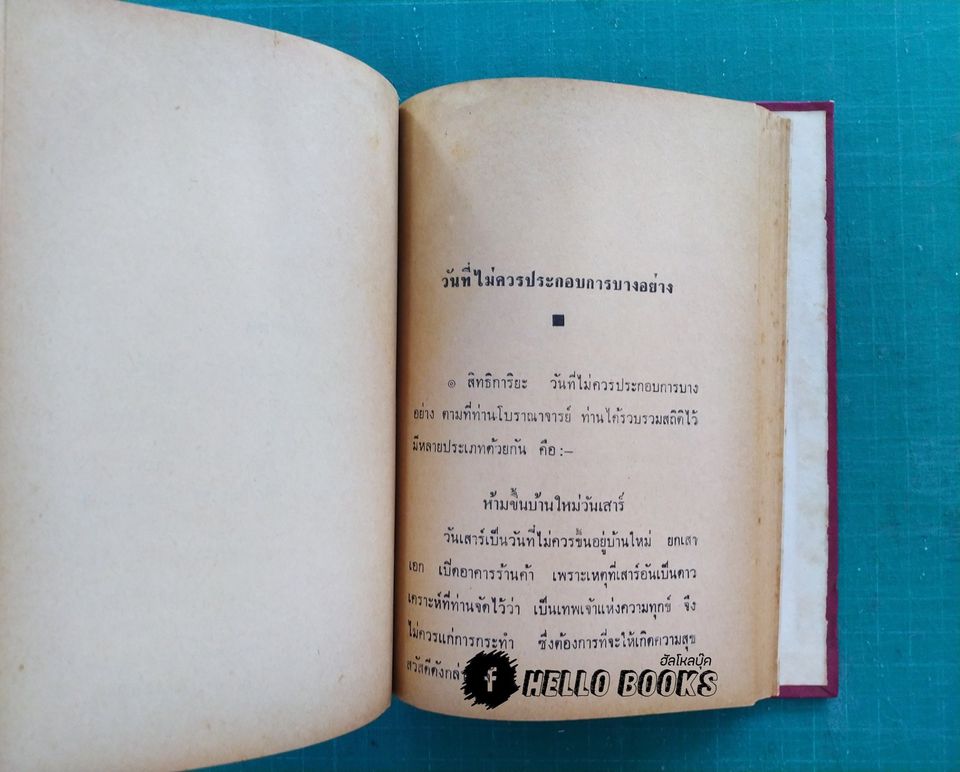 วันที่ไม่ควรประกอบการบางอย่าง
๑ สิทธิการิยะ วันที่ไม่ควรประกอบการบาง
อย่าง ตามที่ท่านโบราณาจารย์ ท่านได้รวบรวมสถิติไว้
มีหลายประเภทด้วยกัน คือ :–
ห้ามขึ้นบ้านใหม่วันเสาร์
วันเสาร์เป็นวันที่ไม่ควรขึ้นอยู่บ้านใหม่ ยกเสา
เอก เปิดอาคารร้านค้า เพราะเหตุที่เสาร์อันเป็นดาว
เคราะห์ที่ท่านจัดไว้ว่า เป็นเทพเจ้าแห่งความทุกข์ จึง
ไม่ควรแก่การกระทำ ซึ่งต้องการที่จะให้เกิดความสุข
สวัสดีดังกล่
ฮัลโหลบุ๊ค
f HELLO BOOKS